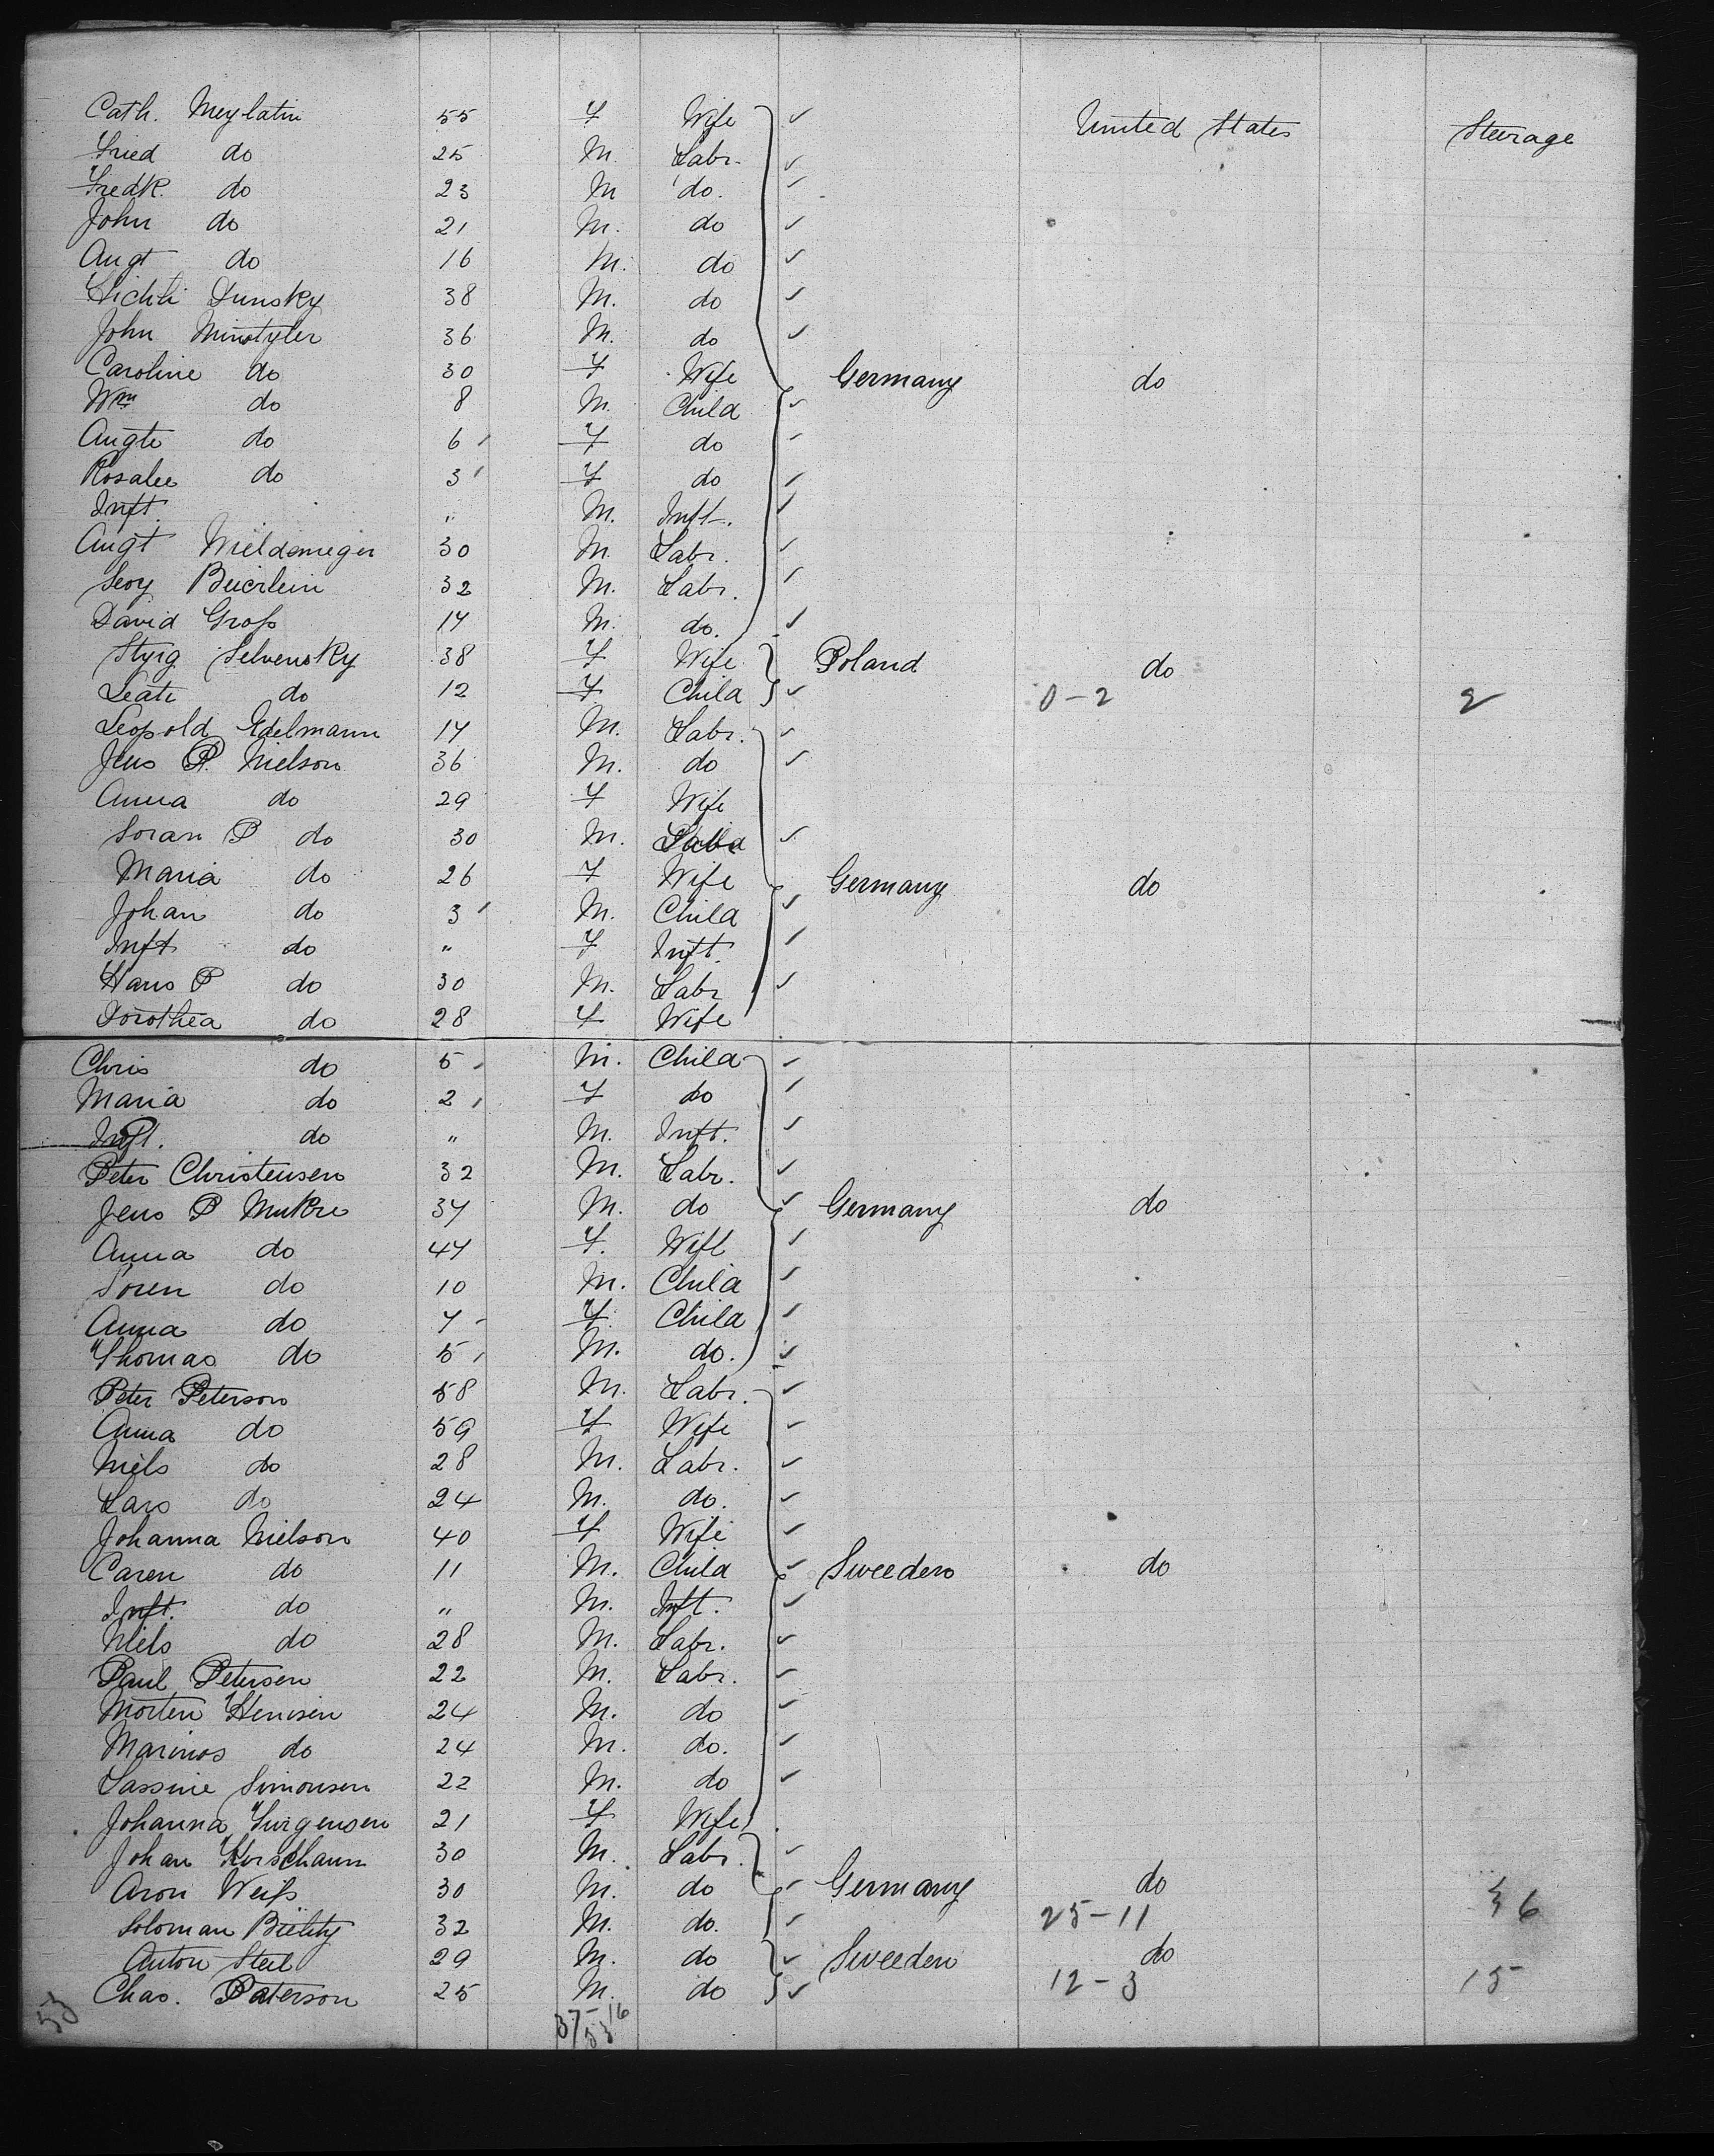 Cath. Meylatin 55 F Wife United States Steerage
Fried do 25 M Labr.
Fredk. do 23 M do.
John do 21 M. do
Augt do 16 M. do
38 M. do
John Minotyler 36 M. do
Caroline do 30 F Wife Germany do
Wm do 8 M. Child
Augte do 6 F do
Rosalie do 3 F do
Inft. " M. Inft.
Augt 30 M. Labr.
32 M. Labr.
David Groß 14 M. do.
Selvensky 38 F Wife Poland do
Leate do 12 F Child 0-2 2
Leopold Edelmann 14 M. Labr.
Jens P. Nielson 36 M. do
Anna do 29 F Wife
Soran P do 30 M.
Maria do 26 F Wife Germany do
Johan do 3 M. Child
Inft do " F Inft.
Hans P do 30 M. Labr
Dorothea do 28 F Wife
Chris do 5 M. Child
Maria do 2 F do
Inft. do " M. Inft.
Peter Christensen 32 M. Labr.
Jens P Mukre 34 M. do Germany do
Anna do 44 F. Wife
Soren do 10 M. Child
Anna do 7 F. Child
Thomas do 5 M. do.
Peter Peterson 58 M. Labr.
Anna do 59 F Wife
Niels do 28 M. Labr.
Lars do 24 M. do.
Johanna Nielson 40 F Wife
Caren do 11 M. Child Sweeden do
Inft. do " M. Inft.
Niels do 28 M. Labr.
Paul Petersen 22 M. Labr.
Morten Hensen 24 M. do
Marinos do 24 M. do.
Lassine Simonsen 22 M. do
Johanna Jurgensen 21 F Wife
Johan Herschaum 30 M. Labr.
Aron Weiß 30 M. do Germany do
Soloman 32 M. do. 25-11 36
Anton Steil 29 M. do Sweeden do
Chas. Paterson 25 M. do 12-3 15
53 37-16
53